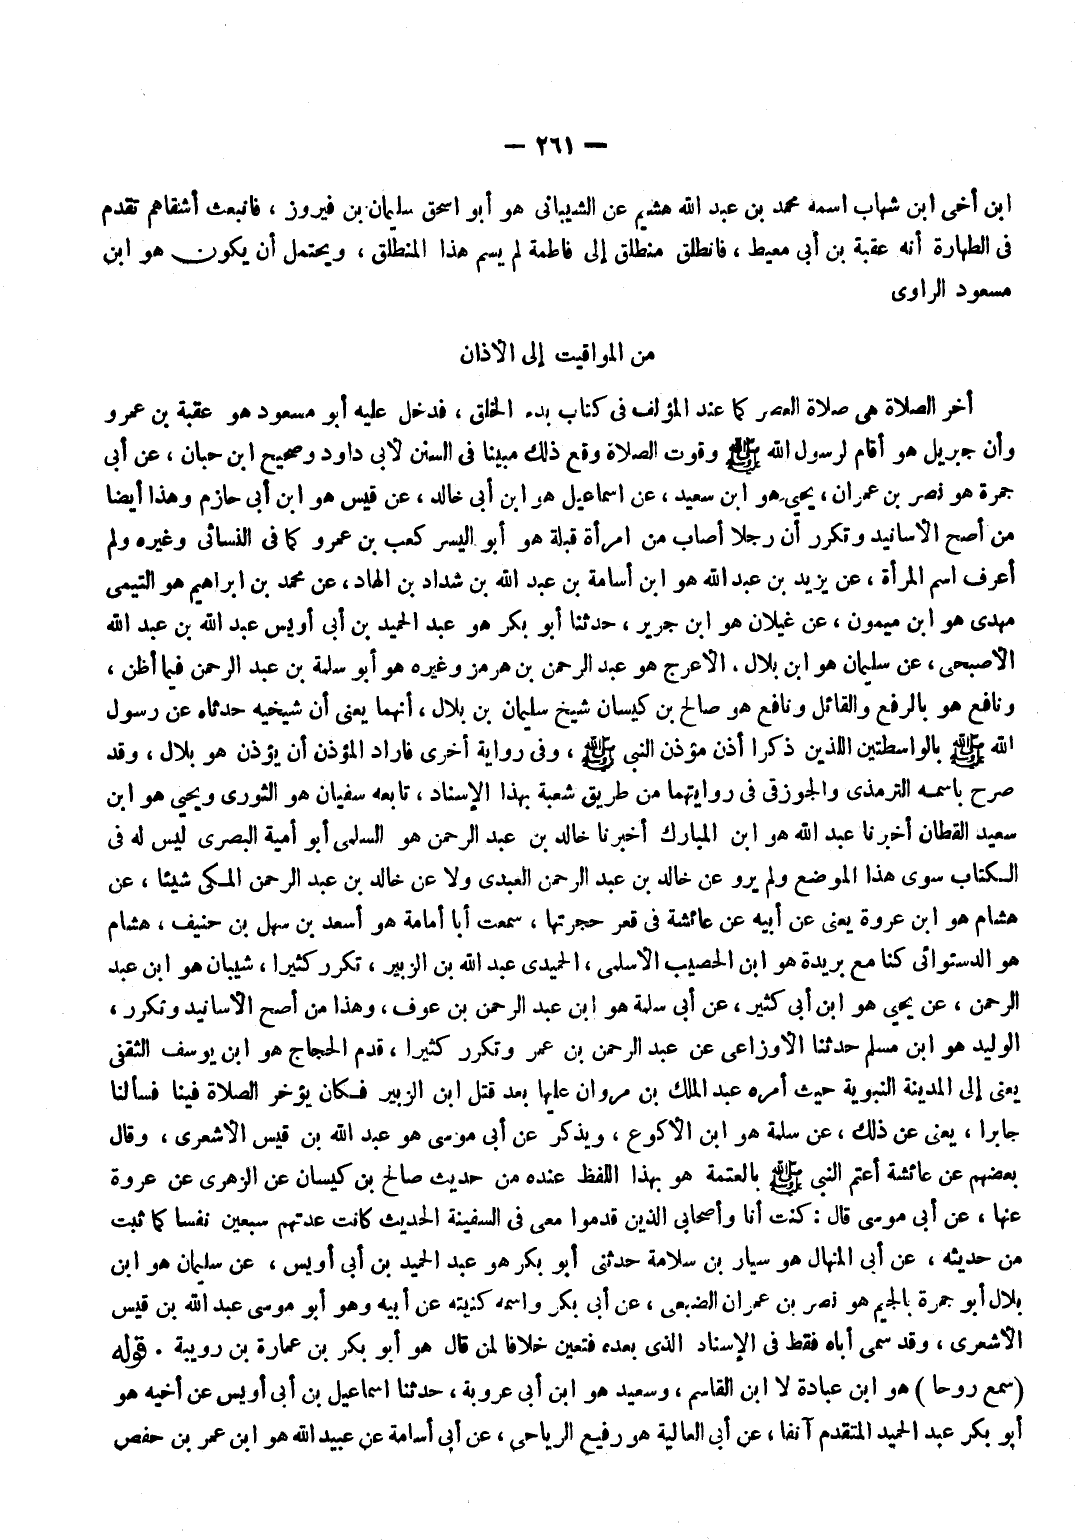 — ٢٦١ —
ابن أخى ابن شهاب اسمه محمد بن عبد الله هشيم عن الشيبانى هو أبو اسحق سليمان بن فيروز ، فانبعث أشقاهم تقدم
فى الطهارة أنه عقبة بن أبى معيط ، فانطلق منطلق إلى فاطمة لم يسم هذا المنطلق ، ويحتمل أن يكون هو ابن
مسعود الراوى
من المواقيت إلى الأذان
أخر الصلاة هى صلاة العصر كما عند المؤلف فى كتاب بدء الخلق ، فدخل عليه أبو مسعود هو عقبة بن عمرو
وأن جبريل هو أقام لرسول الله ﷺ وقوت الصلاة وقع ذلك مبينا فى السنن لأبى داود وصحيح ابن حبان ، عن أبى
جمرة هو نصر بن عمران ، يحيى هو ابن سعيد ، عن اسماعيل هو ابن أبى خالد ، عن قيس هو ابن أبى حازم وهذا أيضا
من أصح الأسانيد وتكرر أن رجلا أصاب من امرأة قبلة هو أبو اليسر كعب بن عمرو كما فى النسائى وغيره ولم
أعرف اسم المرأة ، عن يزيد بن عبد الله هو ابن أسامة بن عبد الله بن شداد بن الهاد ، عن محمد بن ابراهيم هو التيمى
مهدى هو ابن ميمون ، عن غيلان هو ابن جرير ، حدثنا أبو بكر هو عبد الحميد بن أبى أويس عبد الله بن عبد الله
الأصبحى ، عن سليمان هو ابن بلال . الأعرج هو عبد الرحمن بن هرمز وغيره هو أبو سلمة بن عبد الرحمن فيما أظن ،
ونافع هو بالرفع والقائل ونافع هو صالح بن كيسان شيخ سليمان بن بلال ، أنهما يعنى أن شيخيه حدثاه عن رسول
الله ﷺ بالواسطتين اللذين ذكرا أذن مؤذن النبى ﷺ ، وفى رواية أخرى فاراد المؤذن أن يؤذن هو بلال ، وقد
صرح باسمه الترمذى والجوزقى فى روايتهما من طريق شعبة بهذا الإسناد ، تابعه سفيان هو الثورى ويحيى هو ابن
سعيد القطان أخبرنا عبد الله هو ابن المبارك أخبرنا خالد بن عبد الرحمن هو السلمى أبو أمية البصرى ليس له فى
الكتاب سوى هذا الموضع ولم يرو عن خالد بن عبد الرحمن العبدى ولا عن خالد بن عبد الرحمن المكى شيئا ، عن
هشام هو ابن عروة يعنى عن أبيه عن عائشة فى قعر حجرتها ، سمعت أبا أمامة هو أسعد بن سهل بن حنيف ، هشام
هو الدستوائى كنا مع بريدة هو ابن الحصيب الأسلمى ، الحميدى عبد الله بن الزبير ، تكرر كثيرا ، شيبان هو ابن عبد
الرحمن ، عن يحيى هو ابن أبى كثير ، عن أبى سلمة هو ابن عبد الرحمن بن عوف ، وهذا من أصح الأسانيد وتكرر ،
الوليد هو ابن مسلم حدثنا الأوزاعى عن عبد الرحمن بن عمر وتكرر كثيرا ، قدم الحجاج هو ابن يوسف الثقفى
يعنى إلى المدينة النبوية حيث أمره عبد الملك بن مروان عليها بعد قتل ابن الزبير فكان يؤخر الصلاة فينا فسألنا
جابرا ، يعنى عن ذلك ، عن سلمة هو ابن الأكوع ، ويذكر عن أبى موسى هو عبد الله بن قيس الأشعرى ، وقال
بعضهم عن عائشة أعتم النبى ﷺ بالعتمة هو بهذا اللفظ عنده من حديث صالح بن كيسان عن الزهرى عن عروة
عنها ، عن أبى موسى قال : كنت أنا وأصحابى الذين قدموا معى فى السفينة الحديث كانت عدتهم سبعين نفسا كما ثبت
من حديثه ، عن أبى المنهال هو سيار بن سلامة حدثنى أبو بكر هو عبد الحميد بن أبى أويس ، عن سليمان هو ابن
بلال أبو جمرة بالجيم هو نصر بن عمران الضبعى ، عن أبى بكر واسمه كنيته عن أبيه وهو أبو موسى عبد الله بن قيس
الأشعرى ، وقد سمى أباه فقط فى الإسناد الذى بعده فتعين خلافا لمن قال هو أبو بكر بن عمارة بن رويبة . قوله
(سمع روحا) هو ابن عبادة لا ابن القاسم ، وسعيد هو ابن أبى عروبة ، حدثنا اسماعيل بن أبى أويس عن أخيه هو
أبو بكر عبد الحميد المتقدم آنفا ، عن أبى العالية هو رفيع الرياحى ، عن أبى أسامة عن عبيد الله هو ابن عمر بن حفص